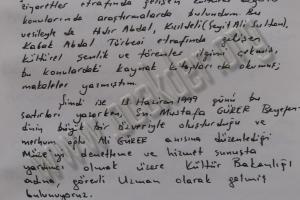 ziyaretler etrafında gelişen kültürel
konularında araştırmalarda bulundum. Bu
vesileyle de Hıdır Abdal, Kızıldeli (Seyit Ali Sultan),
Kabak Abdal Türbesi etrafında gelişen
kültürel şenlik ve törenler ilgimi çekmişti,
bu konulardaki kaynak kitapları da okumuş,
makaleler yazmıştım.
Şimdi ise Haziran 1999 günü bu
satırları yazarken, Sn. Mustafa GÜRER Beyefen-
dinin büyük bir özveriyle oluşturduğu ve
merhum oğlu Ali GÜRER anısına düzenlediği
Müzeyi denetleme ve hizmet sunuşta
yardımcı olmak üzere Kültür Bakanlığı
adına, görevli Uzman olarak gelmiş
bulunuyoruz.